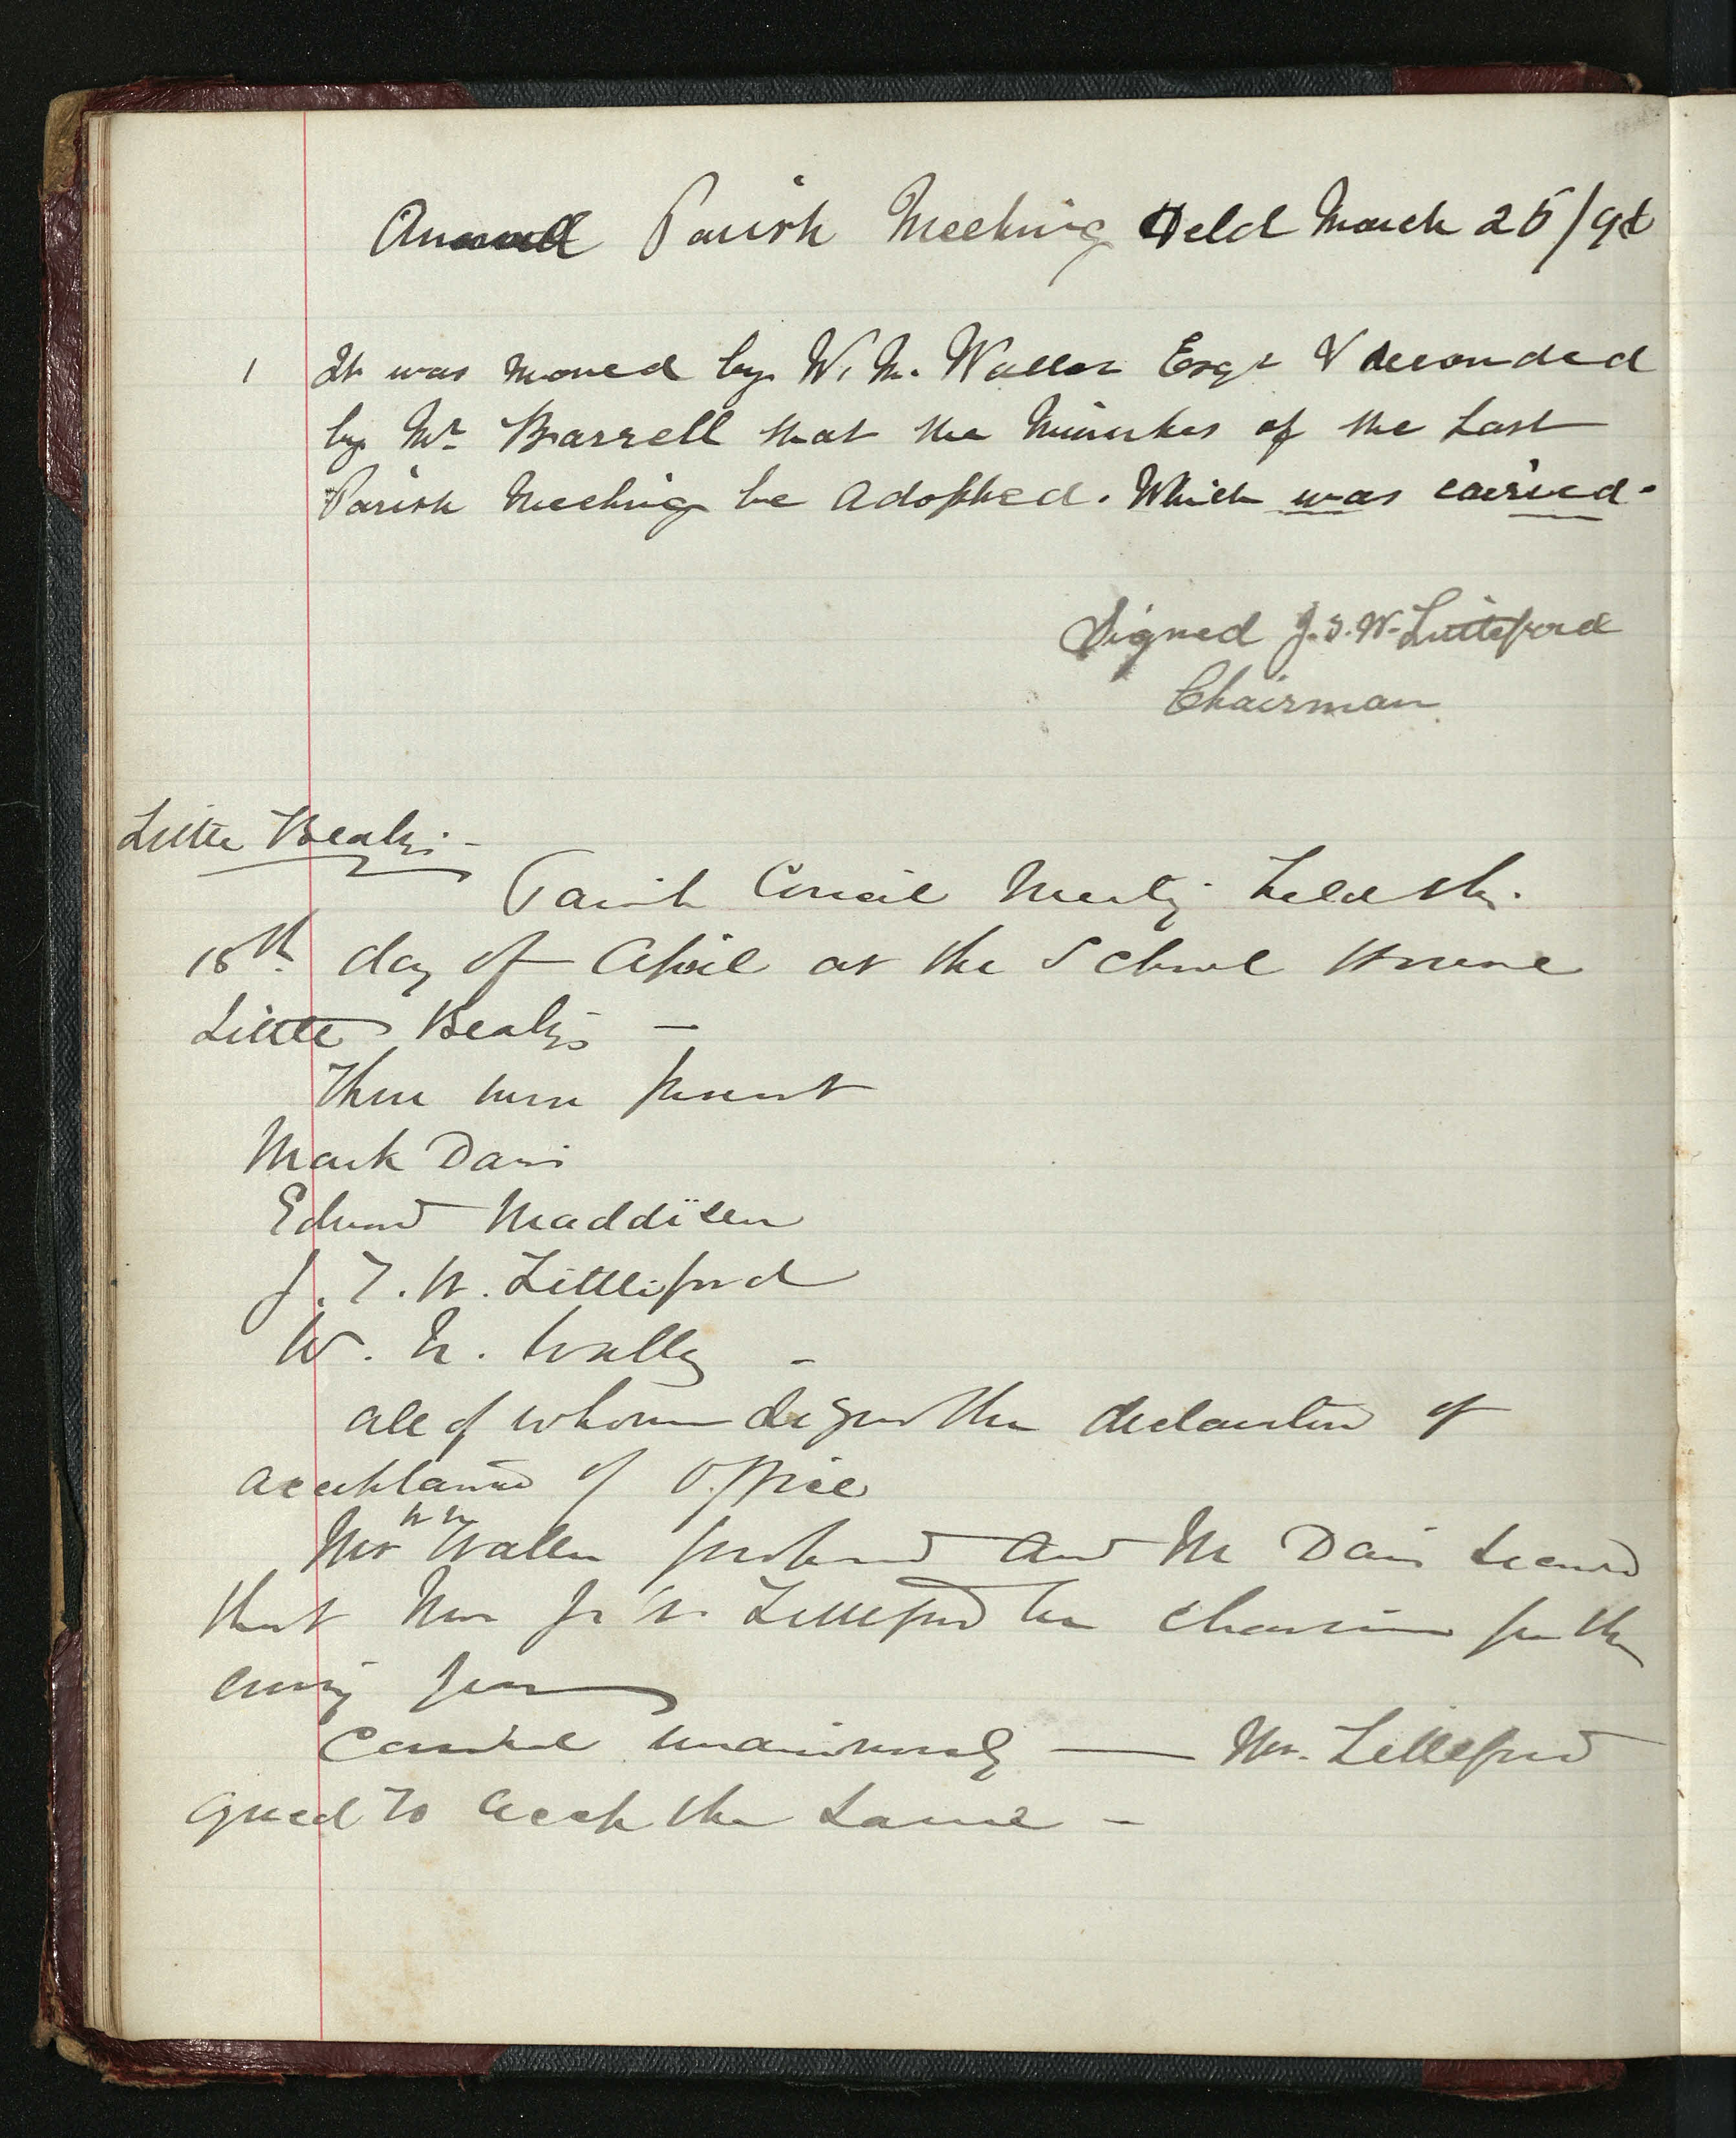 Annual Parish Meeting Held March 25/98
1 It was moved by W. N. Waller Esqr & seconded
by Mr Barrell that the Minutes of the Last
Parish Meeting be adopted. Which was carried.
Signed J.T.W. Littleford
Chairman
Little Bealings
Parish Council Meeting held the
18th day of April at the School House
Little Bealings —
There were present
Mark Davis
Edward Maddison
J. T. W. Littleford
W. N. Waller –
all of whom signed the declaration of
acceptance of Office
Mr W N Waller proposed and Mr Davis second
that Mr Littleford be Chairman for the
ensuing year
Carried unanimously — Mr. Littleford
agreed to accept the same –